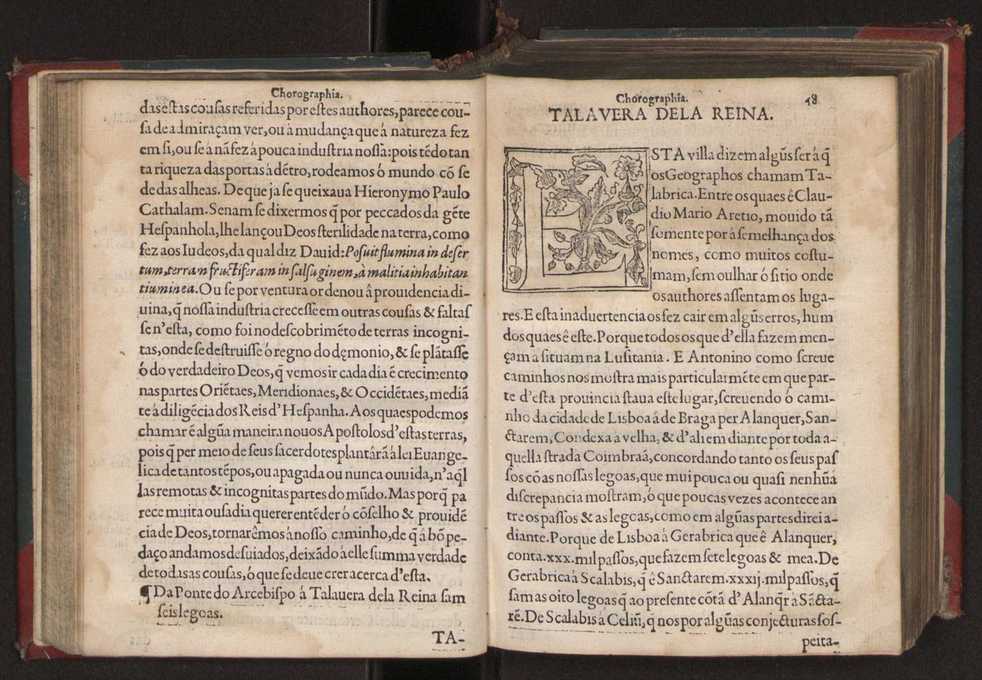 Chorographia.
das estas cousas referidas por estes authores, parece cou-
sa de admiraçam ver, ou à mudança que à natureza fez
em si, ou se à nã fez à pouca industria nossa: pois tẽdo tan
ta riqueza das portas à dẽtro, rodeamos ò mundo cõ se
de das alheas. De que ja se queixaua Hieronymo Paulo
Cathalam. Se nam se dixermos q̃ por peccados da gẽte
Hespanhola, lhe lançou Deos sterilidade na terra, como
fez aos Iudeos, da qual diz Dauid: Posuit flumina in deser
tum, terram fructiferam in salsuginem, à malitia inhabitan
tium in ea. Ou se por ventura ordenou â prouidencia di-
uina, q̃ nossa industria crecesse em outras cousas & faltas
se n'esta, como foi no descobrimẽto de terras incogni-
tas, onde se destruisse ò regno do demonio, & se plãtasse
ò do verdadeiro Deos, q̃ vemos ir cada dia ẽ crecimento
nas partes Oriẽtaes, Meridionaes, & Occidẽtaes, mediã
te à diligẽcia dos Reis d'Hespanha. Aos quaes podemos
chamar ẽ algũa maneira nouos Apostolos d'estas terras,
pois q̃ per meio de seus sacerdotes plantárã à lei Euange-
lica de tantos tẽpos, ou apagada ou nunca ouuida, n'aq̃l
las remotas & incognitas partes do mũdo. Mas porq̃ pa
rece muita ousadia querer entẽder ò cõselho & prouidẽ
cia de Deos, tornarẽmos à nosso caminho, de q̃ à bõ pe-
daço andamos desuiados, deixãdo à elle summa verdade
de todas as cousas, ó que se deue crer acerca d'esta.
¶ Da Ponte do Arcebispo à Talauera dela Reina sam
seis legoas.
TA-
Chorographia. 48
TALAVERA DELA REINA.
ESTA villa dizem algũs ser à q̃
os Geographos chamam Ta-
labrica. Entre os quaes ê Clau-
dio Mario Aretio, mouido tã
somente por à semelhança dos
nomes, como muitos costu-
mam, sem oulhar ò sitio onde
os authores assentam os luga-
res. E esta inaduertencia os fez cair em algũs erros, hum
dos quaes ê este. Porque todos os que d'ella fazem men-
çam a situam na Lusitania. E Antonino como screue
caminhos nos mostra mais particularmẽte em que par-
te d'esta prouincia staua este lugar, screuendo ò cami-
nho da cidade de Lisboa á de Braga per Alanquer, San-
ctarem, Condexa à velha, & d'ahi em diante por toda a-
quella strada Coimbraã, concordando tanto os seus pas
sos cõ as nossas legoas, que mui pouca ou quasi nenhũa
discrepancia mostram, ò que poucas vezes acontece an
tre os passos & as legoas, como em algũas partes direi a-
diante. Porque de Lisboa à Gerabrica que ê Alanquer,
conta .xxx. mil passos, que fazem sete legoas & mea. De
Gerabrica à Scalabis, q̃ ê Sanctarem .xxxij. mil passos, q̃
sam as oito legoas q̃ ao presente cõtã d'Alanq̃r à Sãcta-
rẽ. De Scalabis à Celiũ, q̃ nos por algũas conjecturas sos-
peita-